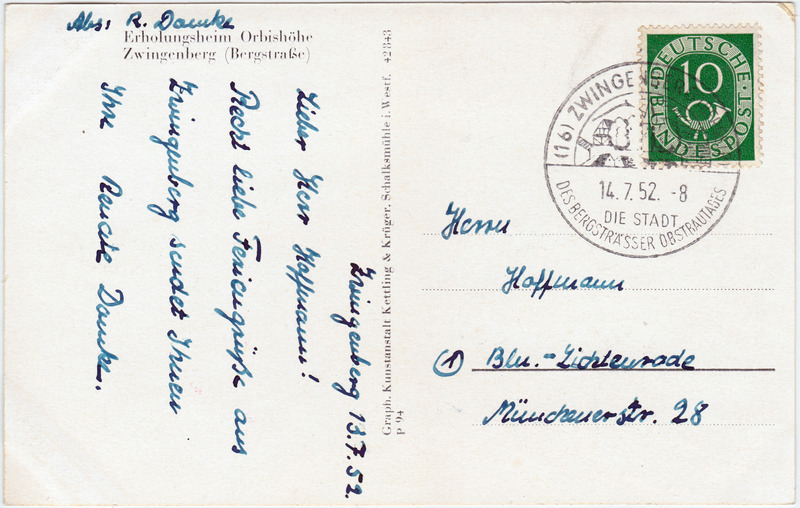 Abs: R. Domke
Erholungsheim Orbishöhe
Zwingenberg (Bergstraße)
Zwingenberg 13.7.52.
Lieber Herr Hoffmann!
Recht liebe Feriengrüße aus
Zwingenberg sendet Ihnen
Ihre Renate Domke.
Graph. Kunstanstalt Kettling & Krüger, Schalksmühle i. Westf. 42843
P 94
DEUTSCHE
10
BUNDESPOST
(16) ZWINGEN
14.7.52.-8
DIE STADT
DES BERGSTRÄSSER OBSTBAUTAGES
Herrn
Hoffmann
(1) Bln.-Lichtenrade
Münchenerstr. 28